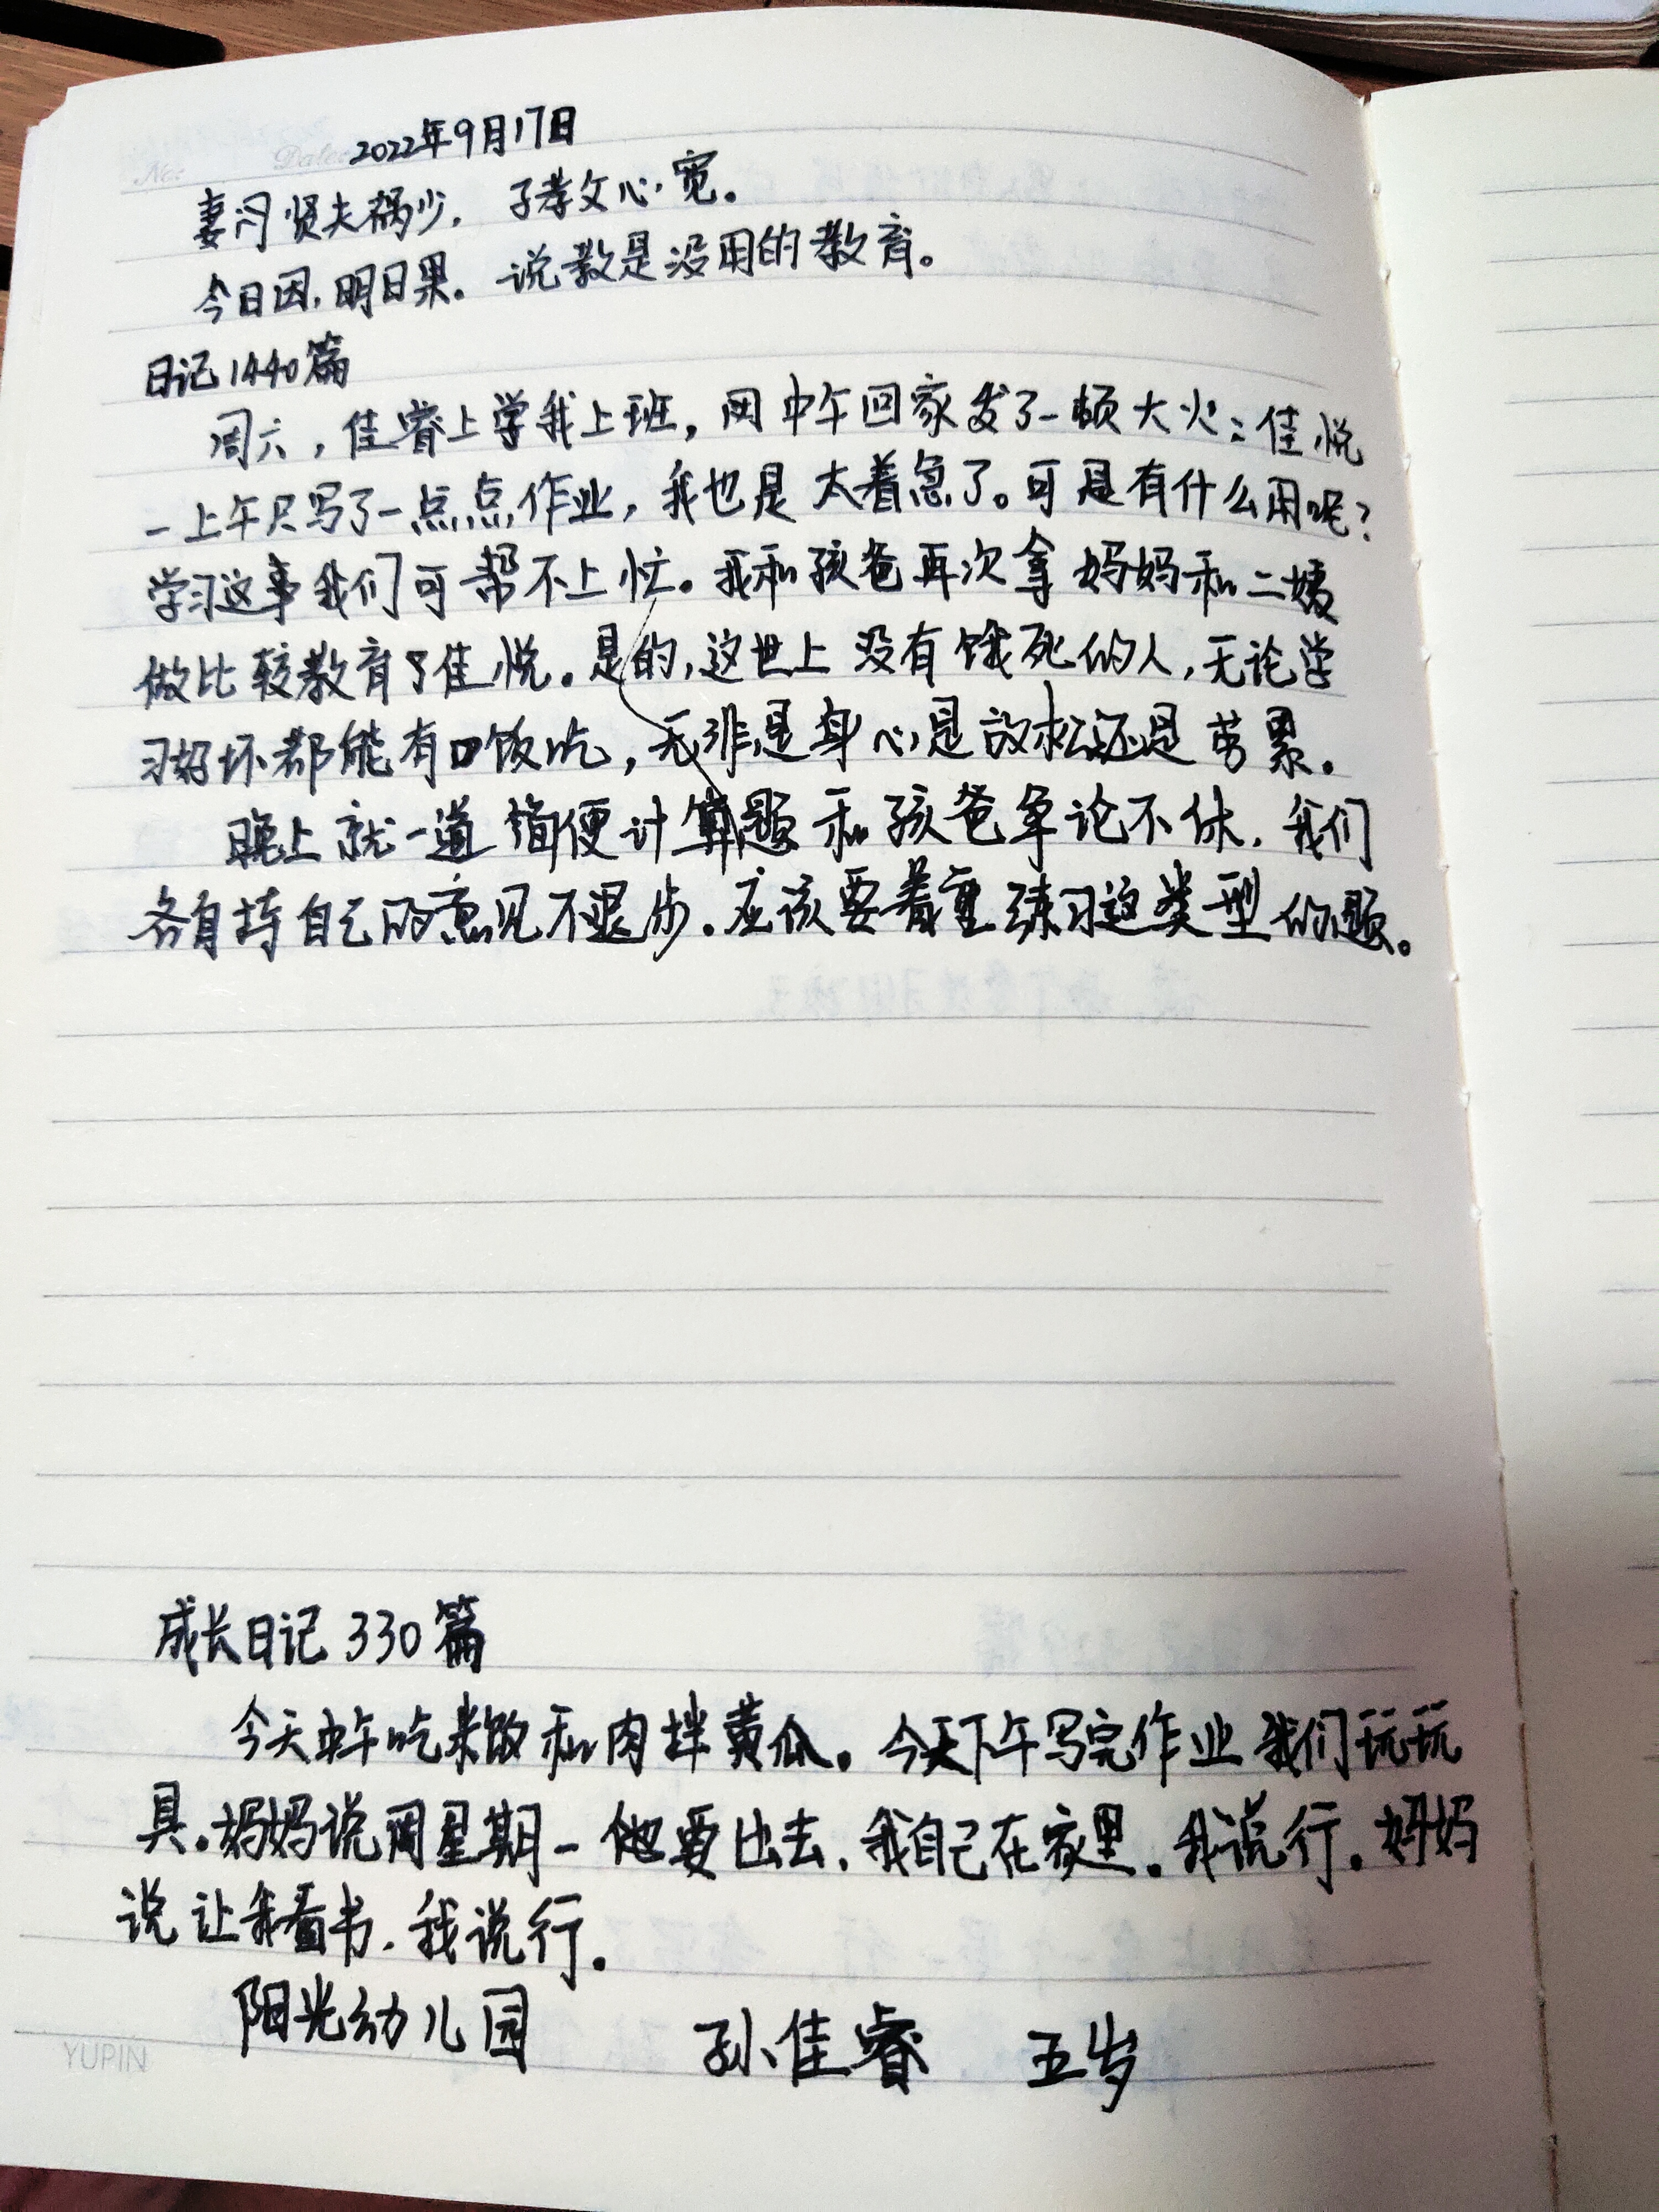 No: Date: 2022年9月17日
妻贤夫祸少，子孝父心宽。
今日因，明日果。说教是没用的教育。
日记1440篇
周六，佳睿上学我上班，中午回家发了一顿大火：佳悦
一上午只写了一点点作业，我也是太着急了。可是有什么用呢？
学习这事我们可帮不上忙。我和孩爸再次拿妈妈和二姨
做比较教育了佳悦。是的，这世上没有饿死的人，无论学
习好坏都能有口饭吃，无非是身心是放松还是劳累。
晚上就一道简便计算题和孩爸争论不休，我们
各自持自己的意见不退步。应该要着重练习这类型的题。
成长日记330篇
今天中午吃米饭和肉拌黄瓜。今天下午写完作业我们玩玩
具。妈妈说周星期一他要出去，我自己在家里。我说行。妈妈
说让我看书，我说行。
阳光幼儿园 孙佳睿 五岁
YUPIN